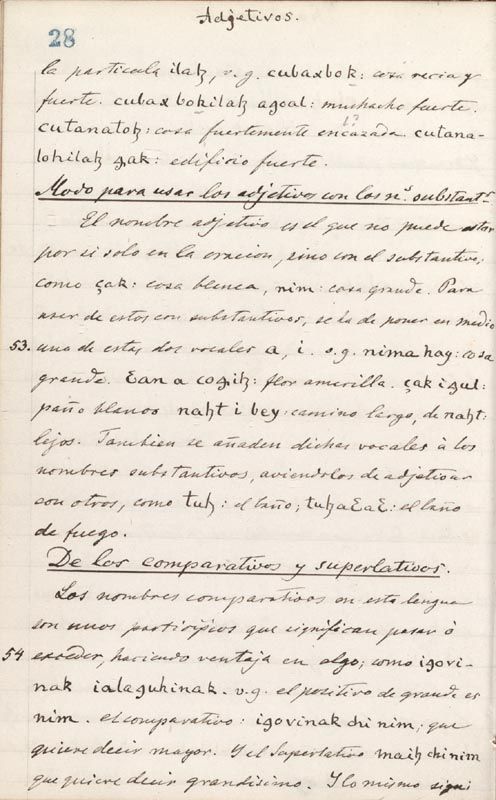 Adjetivos.
28
la particula ilaꜩ, v.g. cubaxboꜩ: cosa recia y
fuerte. cubaxboꜩilaꜩ agoal: muchacho fuerte.
cutanatoꜩ: cosa fuertemente encazada. cutana-
loꜩilaꜩ ꜫaꜩ: edificio fuerte.
Modo para usar los adjetivos con los nˢ. substantˢ
El nombre adjetivo es el que no puede estar
por si solo en la oracion, sino con el substantivo;
como çak: cosa blanca, nim: cosa grande. Para
usar de estos con substantivos, se ha de poner en medio
53. una de estas dos vocales a, i. v.g. nima hay: cosa
grande. Ɛan a coꜫiꜩ: flor amarilla. çak i ꜫul:
paño blanco naꜩt i bey: camino largo, de naꜩt:
lijos. Tambien se añaden dichas vocales à los
nombres substantivos, aviendolos de adjetivar
con otros, como tuꜩ: el baño; tuꜩaƐaƐ: el baño
de fuego.
De los comparativos y superlativos.
Los nombres comparativos en esta lengua
son unos participios que significan pasar ò
54 exceder, haciendo ventaja en algo; como iꜫovi-
nak ialaguhinak. v.g. el positivo de grande es
nim. el comparativo: iꜫovinak chi nim; que
quiere decir mayor. Y el Superlativo maih chi nim
que quiere decir grandisimo. Y lo mismo signi